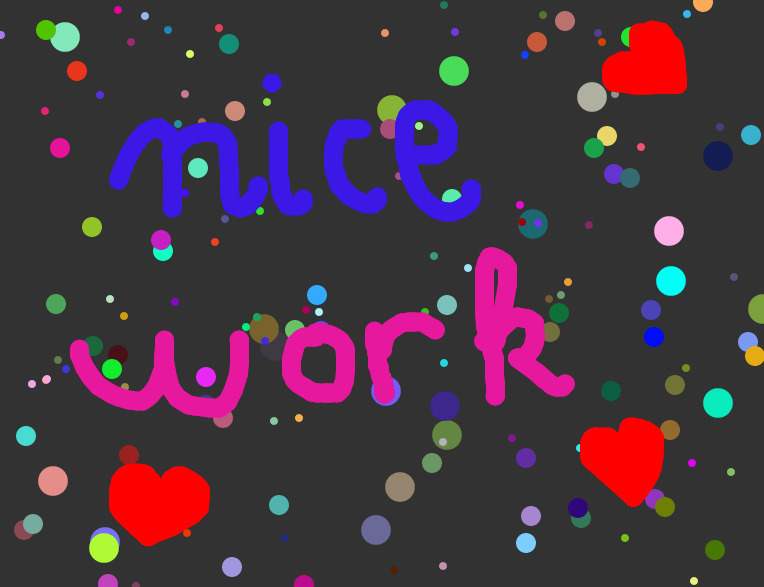 nice
work